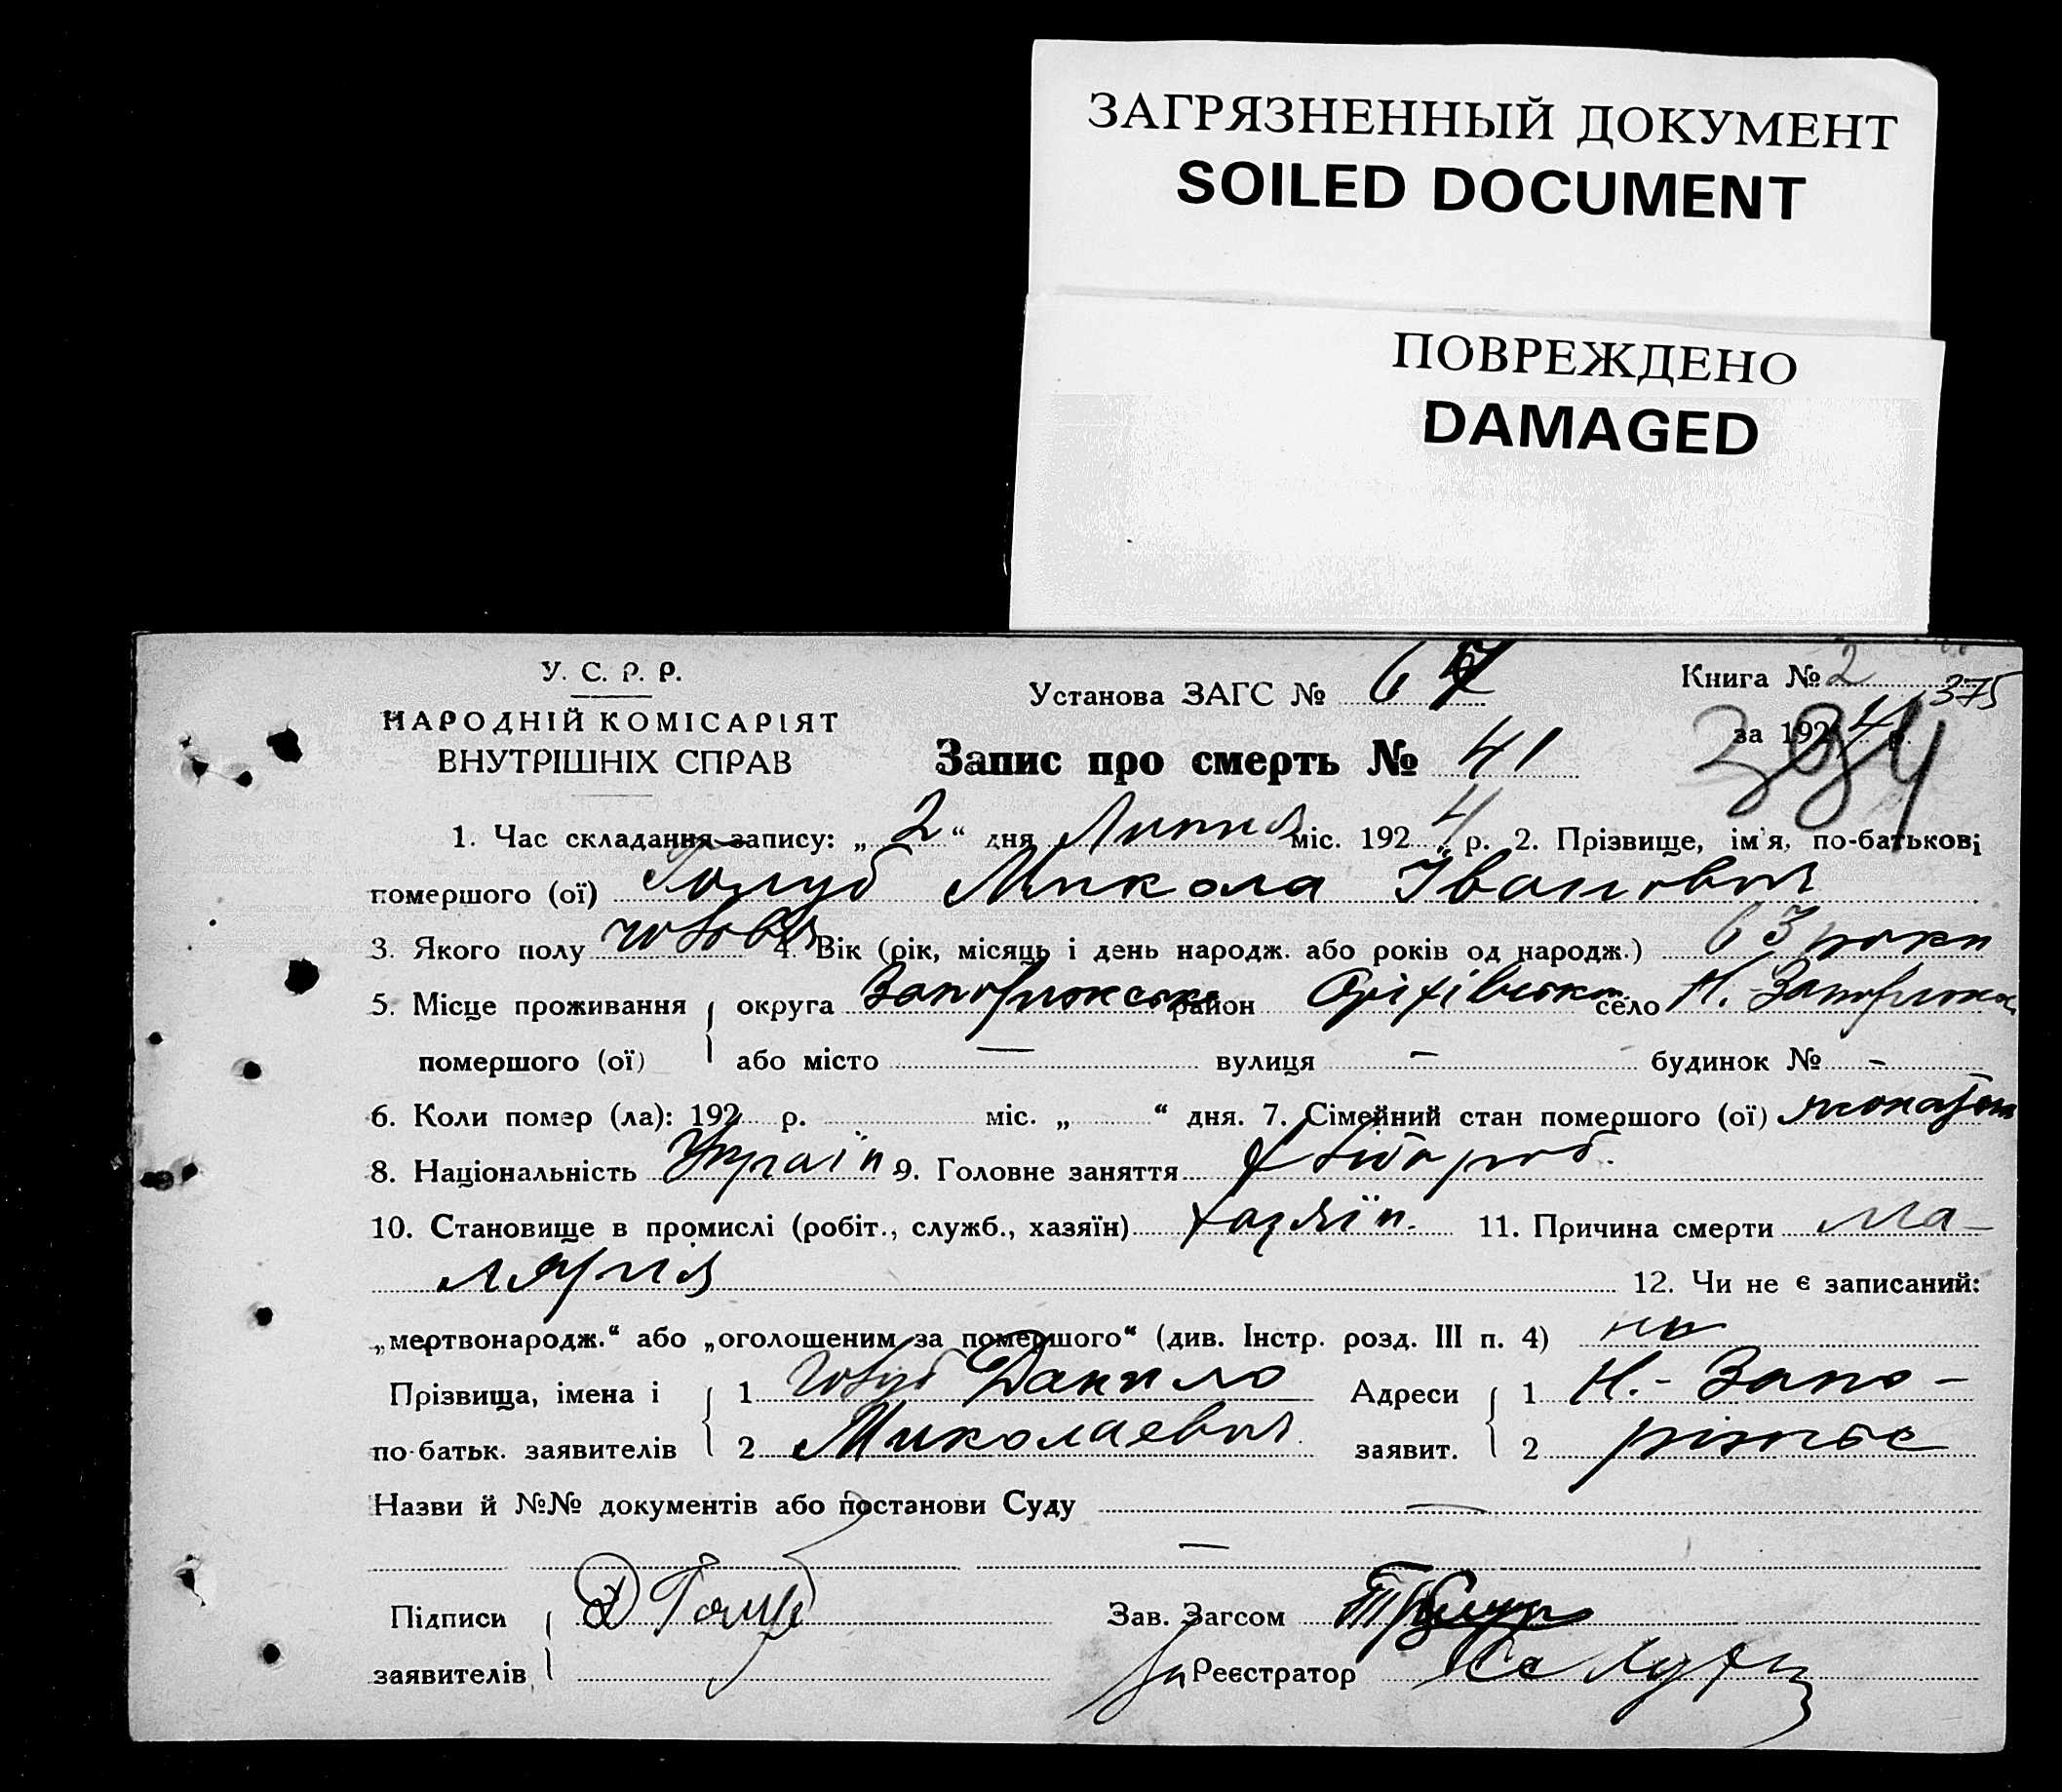 ЗАГРЯЗНЕННЫЙ ДОКУМЕНТ
SOILED DOCUMENT
ПОВРЕЖДЕНО
DAMAGED
У. С. Р. Р.
НАРОДНІЙ КОМІСАРІЯТ
ВНУТРІШНІХ СПРАВ
Установа ЗАГС № 67
Книга № 2
375
за 1924 р.
Запис про смерть № 41
1. Час складання запису: „ 2 “ дня Липня міс. 1924 р. 2. Прізвище, ім'я, по-батькові
помершого (ої) Голуб Микола Іванович
3. Якого полу чолов. 4. Вік (рік, місяць і день народж. або років од народж.) 63 роки
5. Місце проживання округа Запоріжська район Оріхівськ. село Н.-Запоріжжя
помершого (ої) або місто — вулиця — будинок № -
6. Коли помер (ла): 192 р. міс. „ “ дня. 7. Сімейний стан помершого (ої) жонатий
8. Національність Україн. 9. Головне заняття хлібороб.
10. Становище в промислі (робіт., служб., хазяїн) хазяїн. 11. Причина смерти ма-
лярия 12. Чи не є записаний:
„мертвонародж.“ або „оголошеним за помершого“ (див. Інстр. розд. III п. 4) ні
Прізвища, імена і 1 Голуб Данило Адреси 1 Н.-Запо-
по-батьк. заявителів 2 Миколаевич заявит. 2
Назви й №№ документів або постанови Суду —
—
Підписи Д Голуб Зав. Загсом
заявителів За Реєстратор